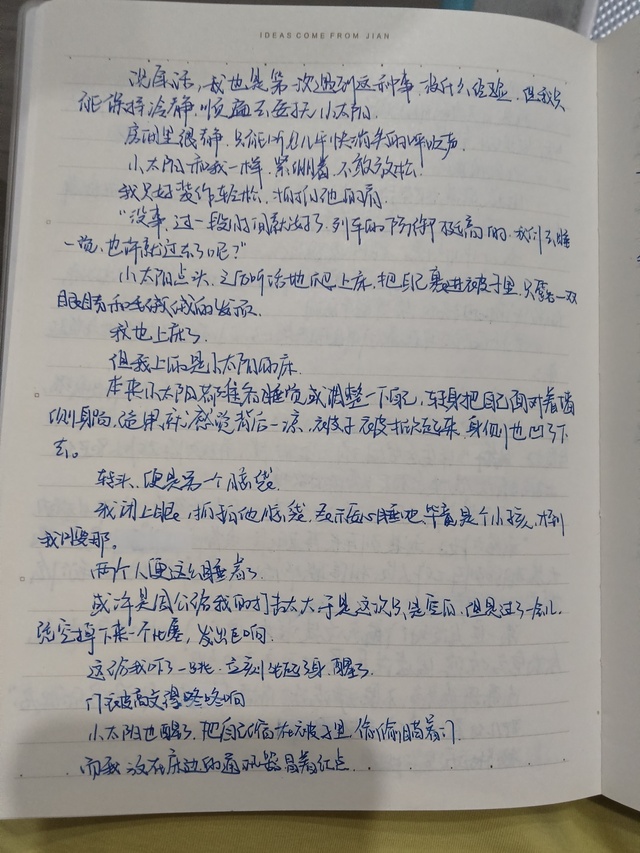 IDEAS COME FROM JIAN
说实话，我也是第一次遇到这种事，没什么经验，但我只
能保持冷静，顺便还安抚小太阳。
房间里很静，只能听到几乎快消失的呼吸声。
小太阳和我一样，紧绷着，不敢放松。
我只好装作轻松，拍拍他的肩。
“没事，过一段时间就好了，列车的防御挺高的，我们先睡
一觉，也许就过去了呢？”
小太阳点头，之后听话地爬上床，把自己裹进被子里，只露一双
眼睛和毛茸茸的发顶。
我也上床了。
但我上的是小太阳的床。
本来小太阳都准备睡觉或调整一下自己，转身把自己面对着墙
侧身躺，结果就感觉背后一凉，被子被掀起来，身侧也凹了下
去。
转头，便是另一个脑袋。
我闭上眼，抓抓他脑袋，表示安心睡吧，毕竟是个小孩，
我
两个人便这么睡着了。
或许是周公给我的打击太大，于是这次只是空白，但是过了一会儿
凭空掉下来一个，发出巨响。
这给我吓了一跳，立刻坐起了身，醒了。
门被敲得咚咚响
小太阳也醒了，把自己缩在被子里，偷偷瞄着门
而我放在床边的通讯器冒着红点